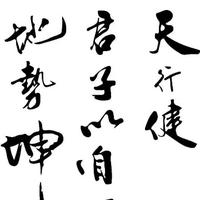 天行健
君子以自
地勢坤